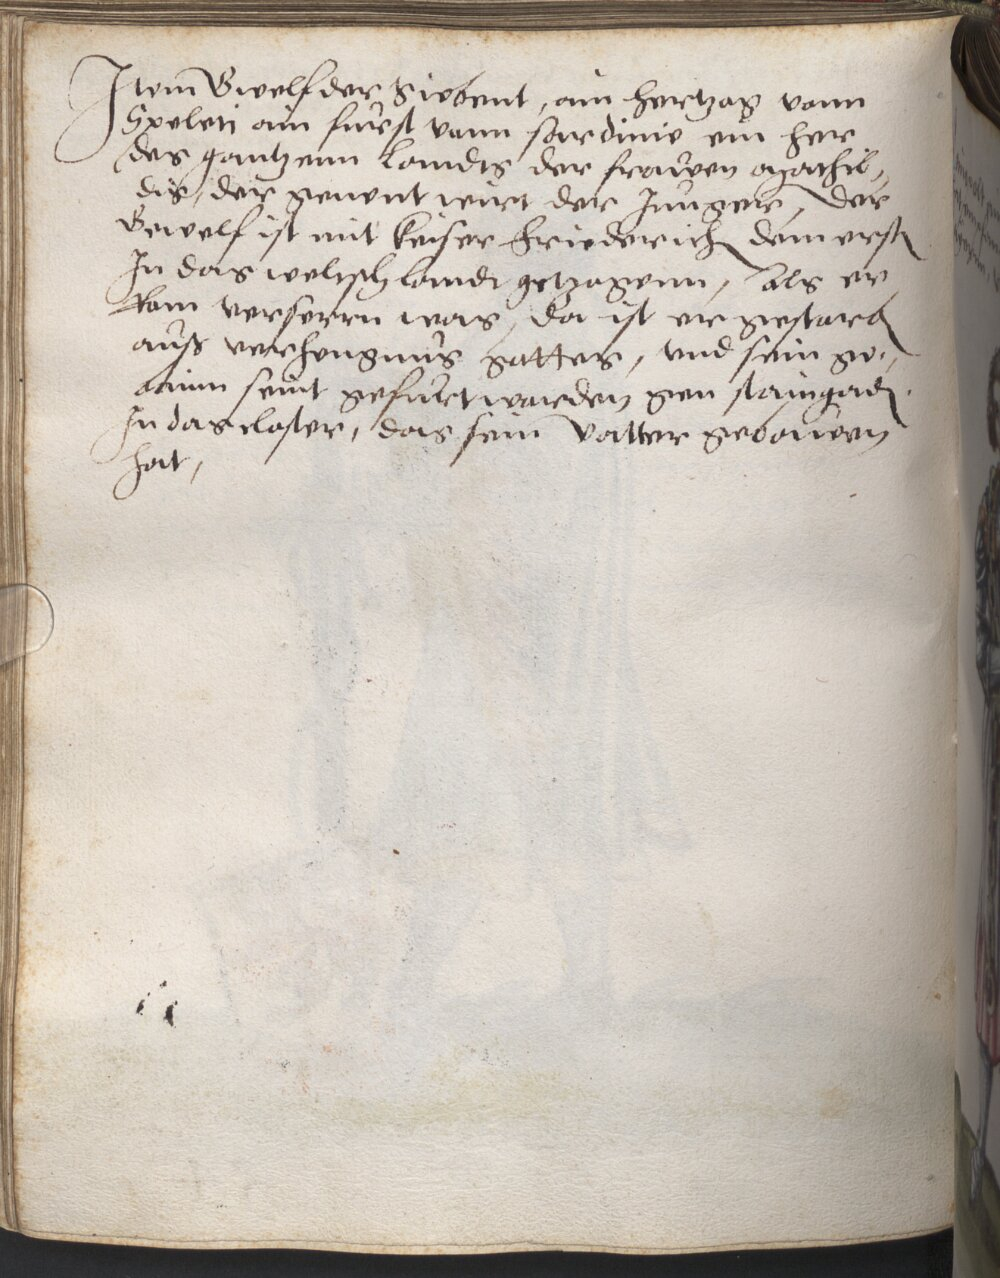 Item Gwelf der Sibent, ain hertzog vonn
Spoleti ain furst vonn sardinie ein her
des gantzenn landts der frawen agathil,,
dis, der genent wirt der Junger, Der
Gwelf ist mit keiser friederich dem erst
In das welisch landt getzogenn, als er
kam was, da ist er gestorb
auss verhengnus gottes, vnd sein ge,,
bainn seint gefurt worden gen staingadn.
In das closter, das sein vatter gebauwen
hat,